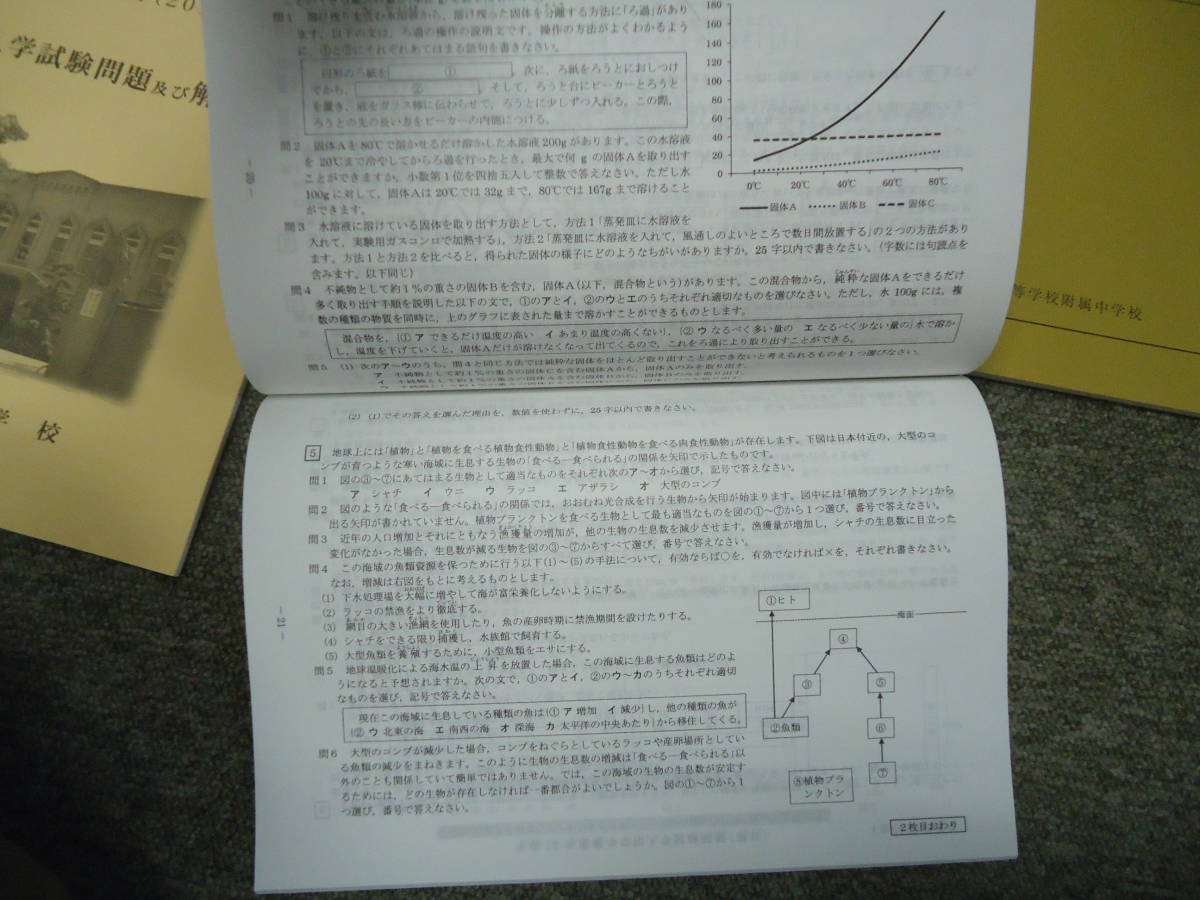 学試験問題及び解
学 校
等学校附属中学校
問1 溶け残りを含む水溶液から，溶け残った固体を分離する方法に「ろ過」があり
ます。以下の文は，ろ過の操作の説明文です。操作の方法がよくわかるよう
に，①と②にそれぞれあてはまる語句を書きなさい。
円形のろ紙を ① 。次に，ろ紙をろうとにおしつけ
てから， ② 。そして，ろうと台にビーカーとろうと
を置き，液をガラス棒に伝わらせて，ろうとに少しずつ入れる。この際，
ろうとの先の長い方をビーカーの内側につける。
問2 固体Aを80℃で溶かせるだけ溶かした水溶液200gがあります。この水溶液
を20℃まで冷やしてからろ過を行ったとき，最大で何gの固体Aを取り出す
ことができますか。小数第1位を四捨五入して整数で答えなさい。ただし水
100gに対して，固体Aは20℃では32gまで，80℃では167gまで溶けること
ができます。
180
160
140
120
100
80
60
40
20
0
0℃ 20℃ 40℃ 60℃ 80℃
固体A 固体B 固体C
問3 水溶液に溶けている固体を取り出す方法として，方法1「蒸発皿に水溶液を
入れて，実験用ガスコンロで加熱する」，方法2「蒸発皿に水溶液を入れて，風通しのよいところで数日間放置する」の2つの方法があり
ます。方法1と方法2を比べると，得られた固体の様子にどのようなちがいがありますか。25字以内で書きなさい。（字数には句読点を
含みます。以下同じ）
問4 不純物として約1％の重さの固体Bを含む，固体A（以下，混合物という）があります。この混合物から，純粋な固体Aをできるだけ
多く取り出す手順を説明した以下の文で，①のアとイ，②のウとエのうちそれぞれ適切なものを選びなさい。ただし，水100gには，複
数の種類の物質を同時に，上のグラフに表された量まで溶かすことができるものとします。
混合物を，{① ア できるだけ温度の高い イ あまり温度の高くない}，{② ウ なるべく多い量の エ なるべく少ない量の}水で溶か
し，温度を下げていくと，固体Aだけが溶けなくなって出てくるので，これをろ過により取り出すことができる。
問5 (1) 次のア～ウのうち，問4と同じ方法では純粋な固体をほとんど取り出すことができないと考えられるものを1つ選びなさい。
ア 不純物として約1％の重さの固体Cを含む固体Aから，固体Aのみを取り出す。
(2) (1)でその答えを選んだ理由を，数値を使わずに，25字以内で書きなさい。
5 地球上には「植物」と「植物を食べる植物食性動物」と「植物食性動物を食べる肉食性動物」が存在します。下図は日本付近の，大型のコ
ンブが育つような寒い海域に生息する生物の「食べる―食べられる」の関係を矢印で示したものです。
問1 図の③～⑦にあてはまる生物として適当なものをそれぞれ次のア～オから選び，記号で答えなさい。
ア シャチ イ ウニ ウ ラッコ エ アザラシ オ 大型のコンブ
問2 図のような「食べる―食べられる」の関係では，おおむね光合成を行う生物から矢印が始まります。図中には「植物プランクトン」から
出る矢印が書かれていません。植物プランクトンを食べる生物として最も適当なものを図の①～⑦から1つ選び，番号で答えなさい。
問3 近年の人口増加とそれにともなう漁獲量の増加が，他の生物の生息数を減少させます。漁獲量が増加し，シャチの生息数に目立った
変化がなかった場合，生息数が減る生物を図の③～⑦からすべて選び，番号で答えなさい。
問4 この海域の魚類資源を保つために行う以下(1)～(5)の手法について，有効ならば○を，有効でなければ×を，それぞれ書きなさい。
なお，増減は右図をもとに考えるものとします。
(1) 下水処理場を大幅に増やして海が富栄養化しないようにする。
(2) ラッコの禁漁をより徹底する。
(3) 網目の大きい漁網を使用したり，魚の産卵時期に禁漁期間を設けたりする。
(4) シャチをできる限り捕獲し，水族館で飼育する。
(5) 大型魚類を養殖するために，小型魚類をエサにする。
問5 地球温暖化による海水温の上昇を放置した場合，この海域に生息する魚類はどのよ
うになると予想されますか。次の文で，①のアとイ，②のウ～カのうちそれぞれ適切
なものを選び，記号で答えなさい。
現在この海域に生息している種類の魚は{① ア 増加 イ 減少}し，他の種類の魚が
{② ウ 北東の海 エ 南西の海 オ 深海 カ 太平洋の中央あたり}から移住してくる。
問6 大型のコンブが減少した場合，コンブをねぐらとしているラッコや産卵場所としてい
る魚類の減少をまねきます。このように生物の生息数の増減は「食べる―食べられる」以
外のことも関係していて簡単ではありません。では，この海域の生物の生息数が安定す
るためには，どの生物が存在しなければ一番都合がよいでしょうか。図の①～⑦から1
つ選び，番号で答えなさい。
①ヒト
海面
④
③
⑤
②魚類
⑥
⑦
⑧植物プラ
ンクトン
2枚目おわり
－21－